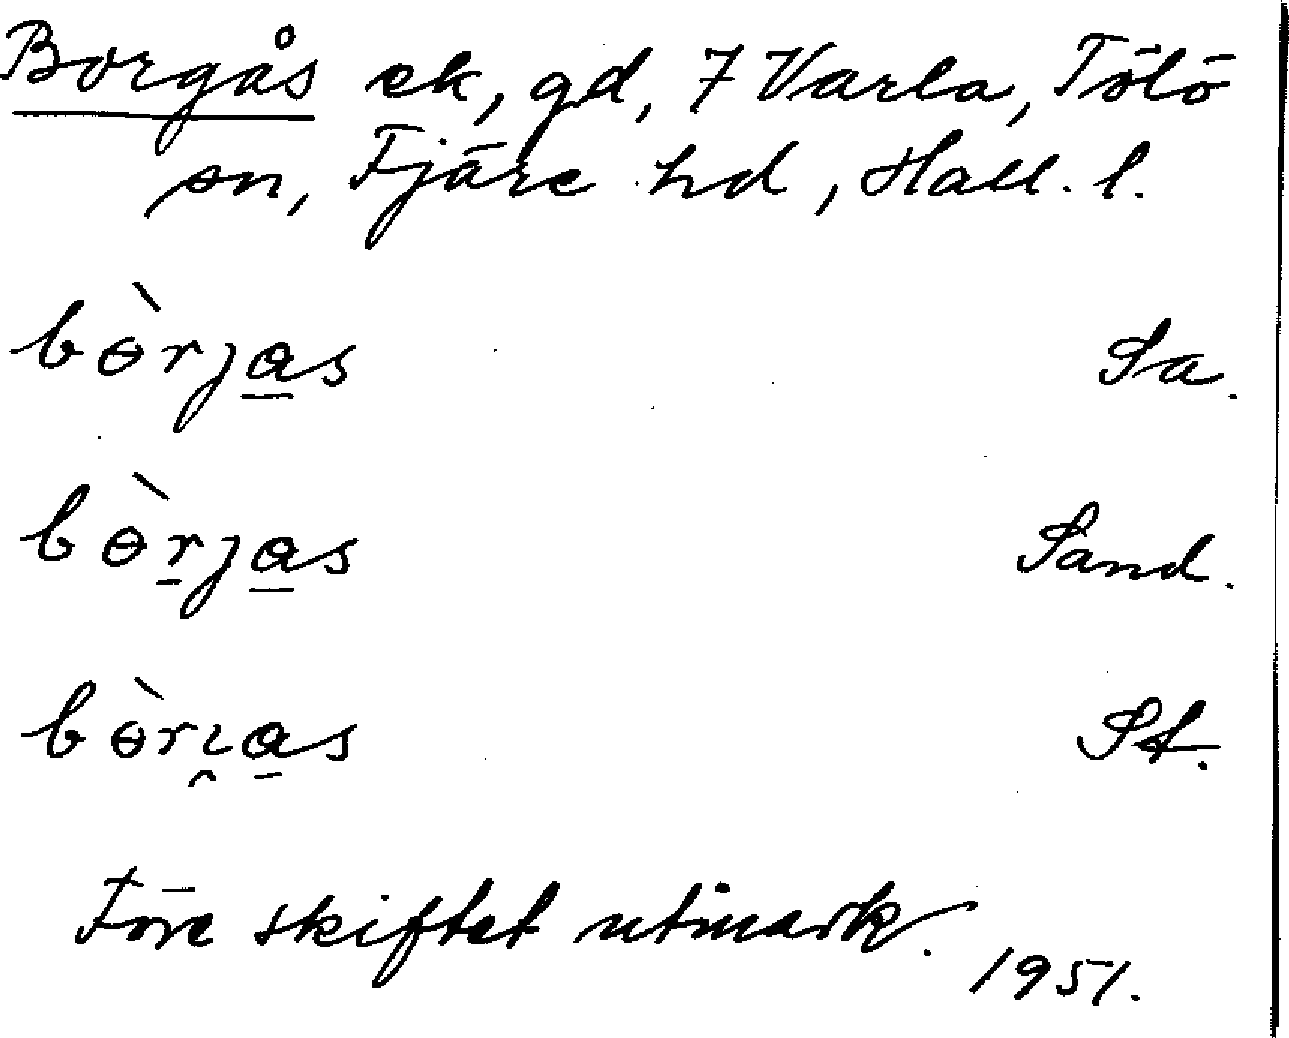 Borgås ek, gd, 7 Varla, Tölö
sn, Fjäre hd, Hall. l.
bɵ̀rja̲s Sa.
bɵ̀r̲ja̲s Sand.
bɵ̀rɿ̯a̲s St.
Före skiftet utmark.
1951.